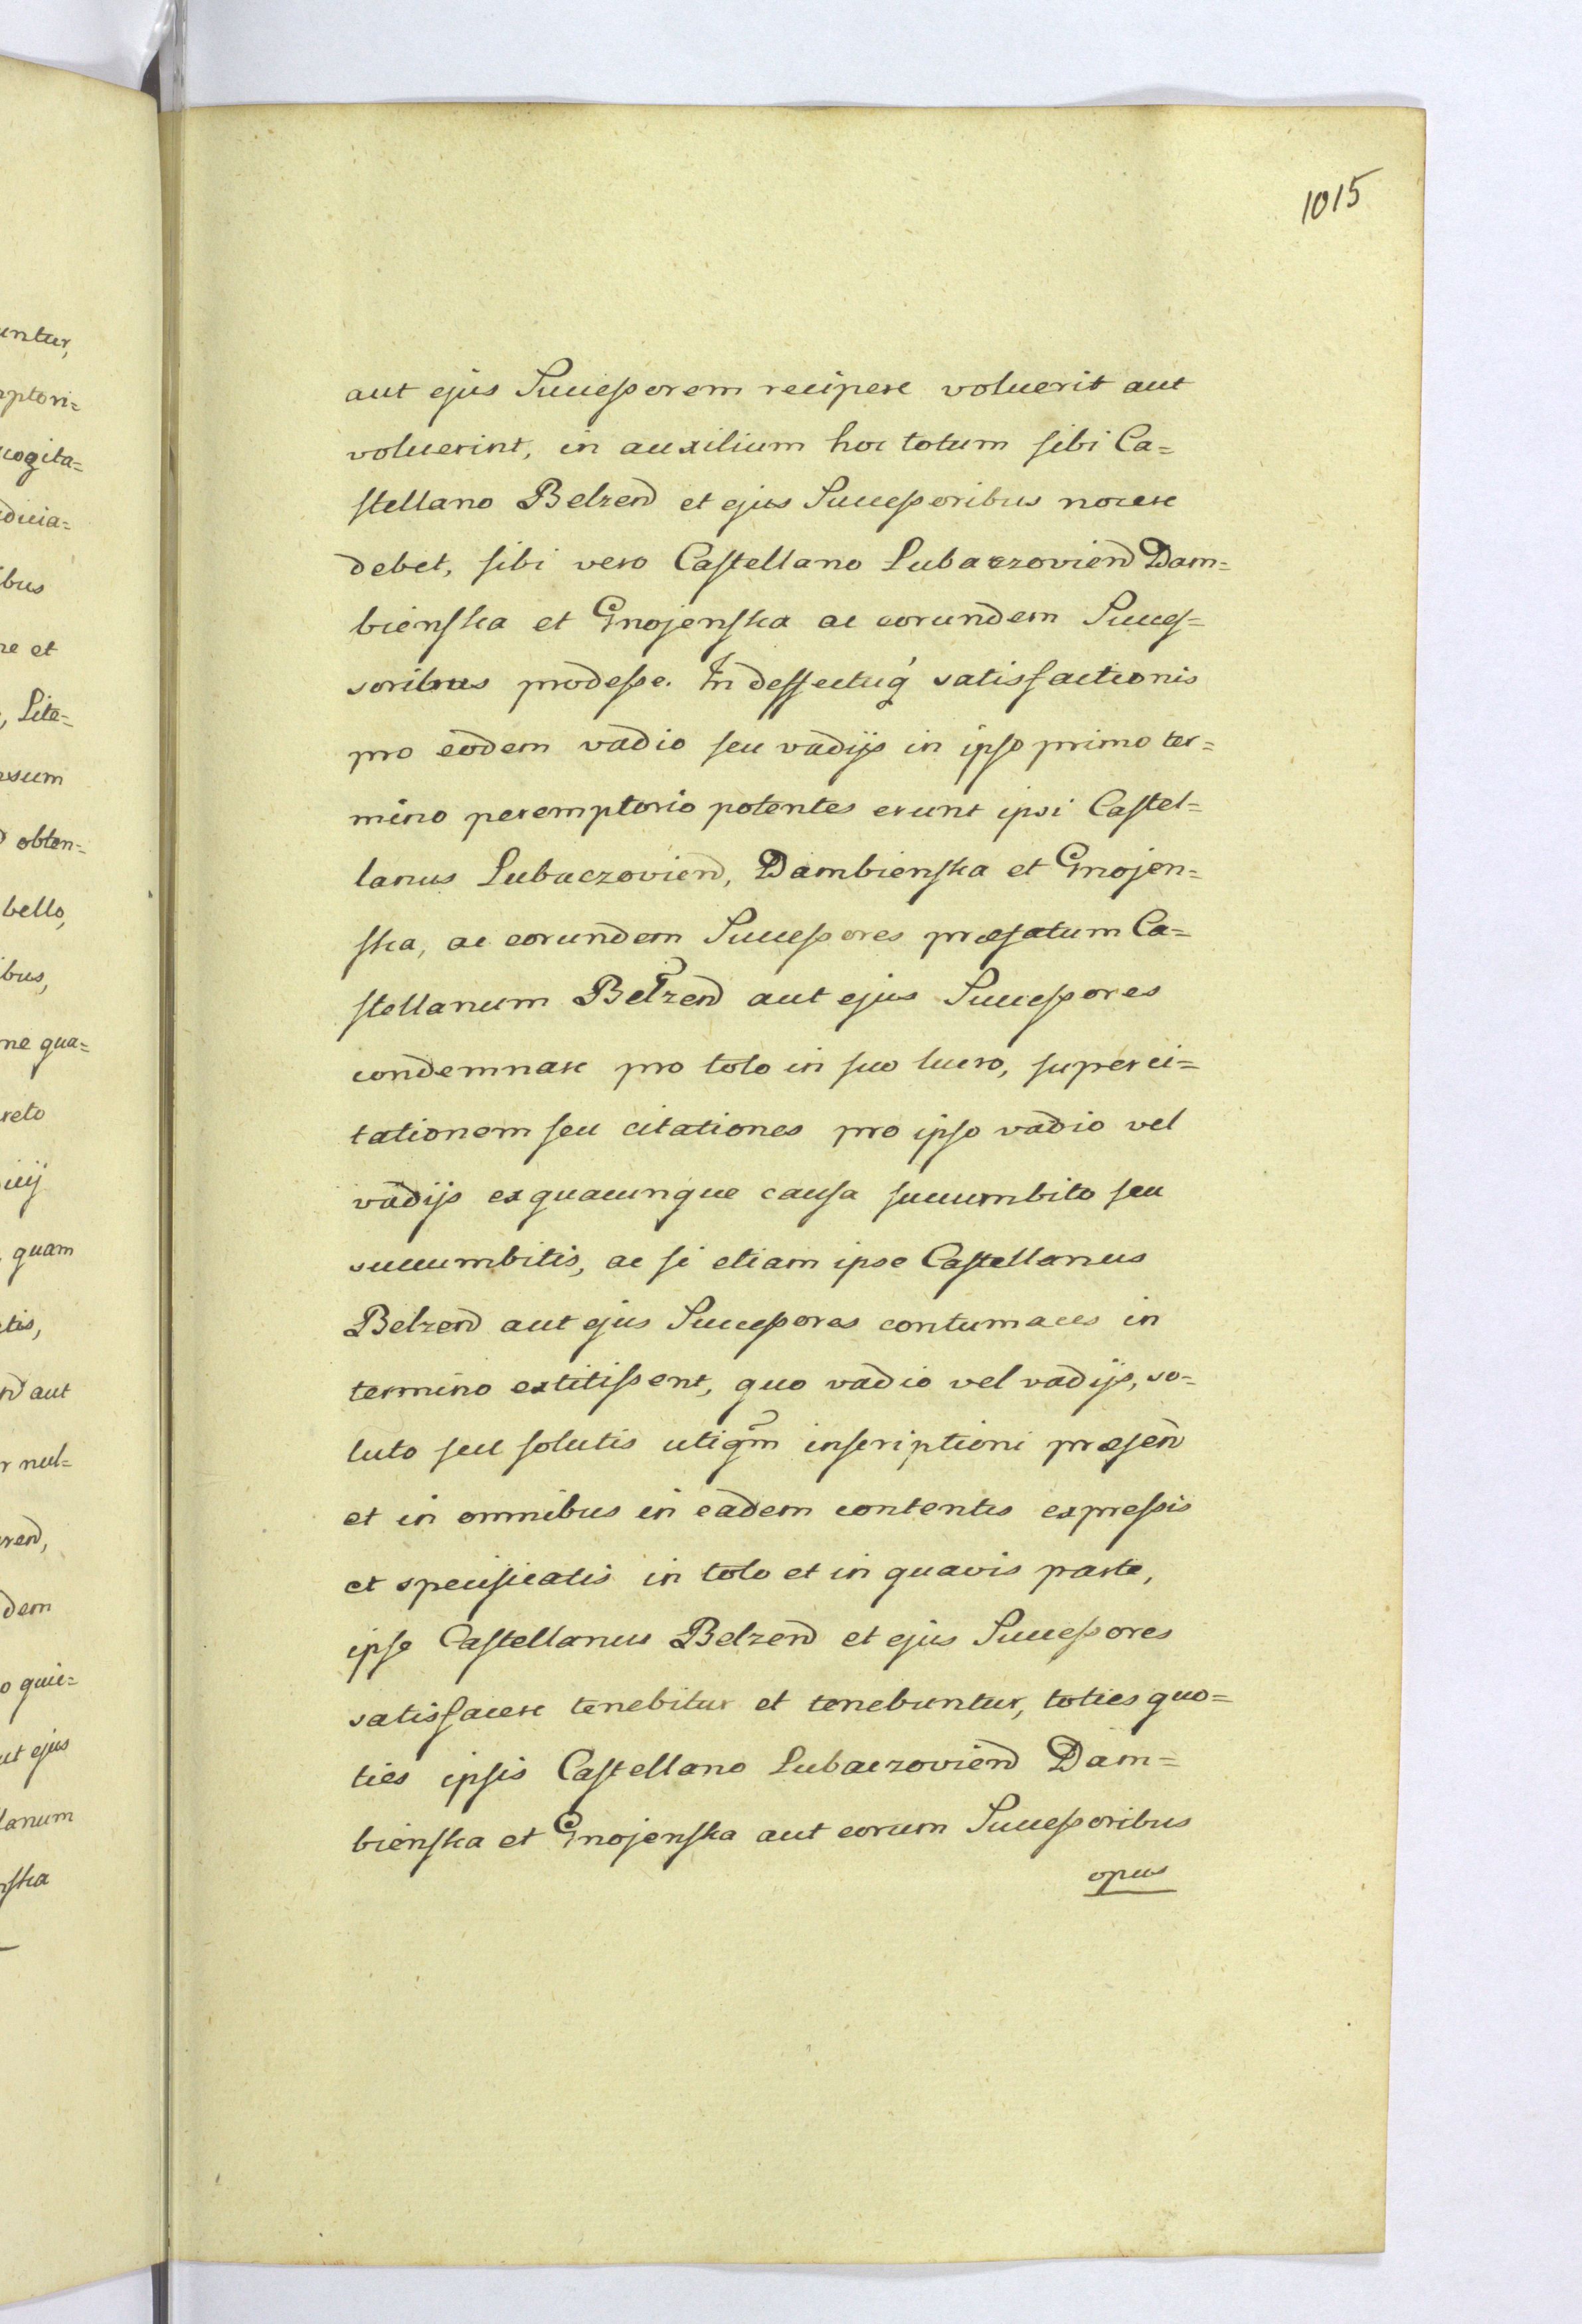 1015
untur,
aut ejus Successorem recipere voluerit aut
ptori=
voluerint, in auxilium hoc totum sibi Ca=
cogita=
stellano Belzen̄ et ejus Successoribus nocere
dicia=
debet, sibi vero Castellano Lubaczovien̄ Dam=
ibus
bienska et Gnojenska ac eorundem Succes=
re et
soribus prodesse. In deffectuq' satisfactionis
, Lite=
pro eodem vadio seu vadijs in ipso primo ter=
sum
mino peremptorio potentes erunt ipsi Castel=
obten=
lanus Lubaczovien̄, Dambienska et Gnojen=
bello,
ska, ac eorundem Successores præfatum Ca=
ibus,
stellanum Belzen̄ aut ejus Successores
ne qua=
condemnare pro toto in suo lucro, super ci=
reto
tationem seu citationes pro ipso vadio vel
vadijs ex quacunque causa succumbito seu
quam
succumbitis, ac si etiam ipse Castellanus
tis,
Belzen̄ aut ejus Successores contumaces in
aut
termino extitissent, quo vadio vel vadijs, so=
r nul=
luto seu solutis utiqm̄ inscriptioni præsen̄
et in omnibus in eadem contentis expressis
ren̄,
et specificatis in toto et in quavis parte,
dem
ipse Castellanus Belzen̄ et ejus Successores
o quie=
satisfacere tenebitur et tenebuntur, toties quo=
ut ejus
ties ipsis Castellano Lubaczovien̄ Dam=
lanum
bienska et Gnojenska aut eorum Successoribus
nska
opus